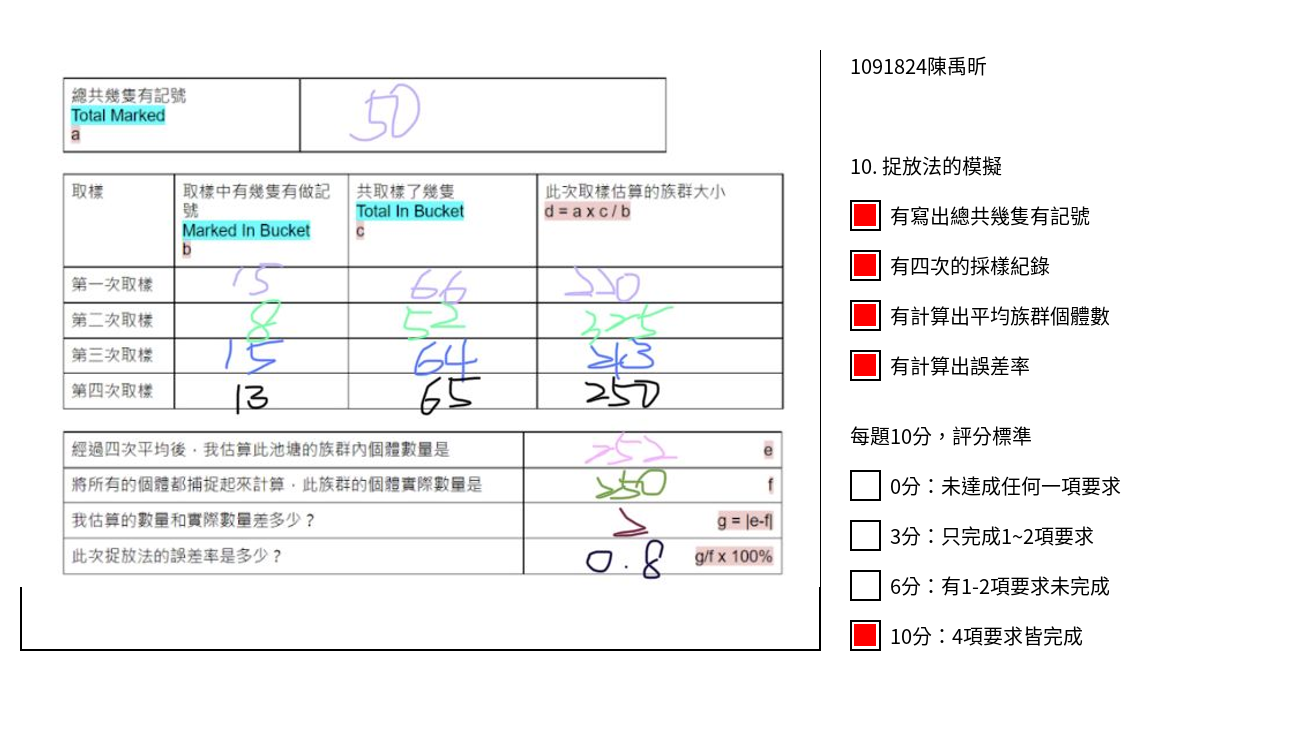 總共幾隻有記號
Total Marked
a
50
取樣
取樣中有幾隻有做記
號
Marked In Bucket
b
共取樣了幾隻
Total In Bucket
c
此次取樣估算的族群大小
d = a x c / b
第一次取樣 15 66 220
第二次取樣 8 52 325
第三次取樣 15 64 213
第四次取樣 13 65 250
經過四次平均後，我估算此池塘的族群內個體數量是 252 e
將所有的個體都捕捉起來計算，此族群的個體實際數量是 250 f
我估算的數量和實際數量差多少？ 2 g = |e-f|
此次捉放法的誤差率是多少？ 0.8 g/f x 100%
1091824陳禹昕
10. 捉放法的模擬
有寫出總共幾隻有記號
有四次的採樣紀錄
有計算出平均族群個體數
有計算出誤差率
每題10分，評分標準
0分：未達成任何一項要求
3分：只完成1~2項要求
6分：有1-2項要求未完成
10分：4項要求皆完成